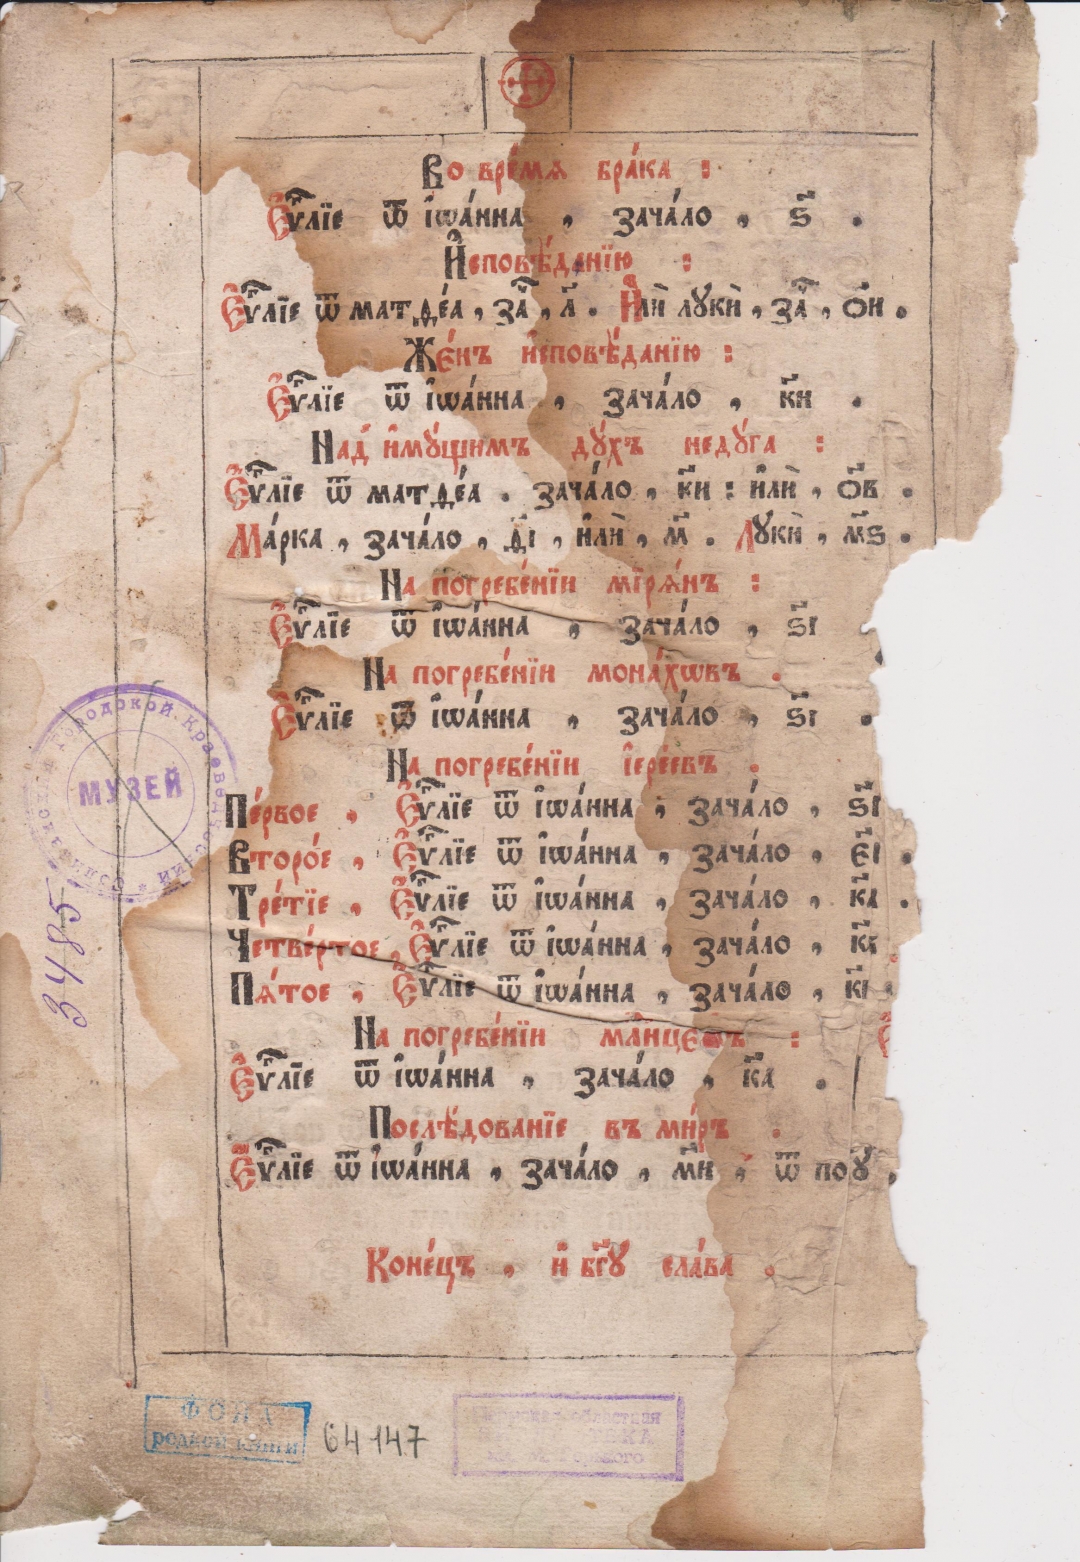 Во вре́мѧ бра́ка :
Є҆ѵⷢ҇лїе ѿ і҆ѡа́нна , зача́ло , ѕ҃ .
И҆сповѣ́данїю :
Є҆ѵⷢ҇лїе ѿ матѳе́а , заⷱ҇ , л҃ . И҆лѝ лꙋкѝ , заⷱ҇ , ѻ҃и .
Же́нъ и҆сповѣ́данїю :
Є҆ѵⷢ҇лїе ѿ і҆ѡа́нна , зача́ло , к҃и .
Над̾ и҆мꙋ́щимъ дꙋ́хъ недꙋ́га :
Є҆ѵⷢ҇лїе ѿ матѳе́а . зача́ло , к҃и : и҆лѝ , ѻ҃в .
Ма́рка , зача́ло , д҃і , и҆лѝ , м҃ . Лꙋкѝ , м҃ѕ .
На погребе́нїи мїрѧ́нъ :
Є҆ѵⷢ҇лїе ѿ і҆ѡа́нна , зача́ло , ѕ҃і
На погребе́нїи мона́хѡвъ .
Є҆ѵⷢ҇лїе ѿ і҆ѡа́нна , зача́ло , ѕ҃і .
На погребе́нїи і҆ере́евъ .
Пе́рвое , Є҆ѵⷢ҇лїе ѿ і҆ѡа́нна , зача́ло , ѕ҃і
Второ́е , Є҆ѵⷢ҇лїе ѿ і҆ѡа́нна , зача́ло , є҃і .
Тре́тїе , Є҆ѵⷢ҇лїе ѿ і҆ѡа́нна , зача́ло , к҃а .
Четве́ртое , Є҆ѵⷢ҇лїе ѿ і҆ѡа́нна , зача́ло ,
Пѧ́тое , Є҆ѵⷢ҇лїе ѿ і҆ѡа́нна , зача́ло ,
На погребе́нїи млⷣнцевъ :
Є҆ѵⷢ҇лїе ѿ і҆ѡа́нна , зача́ло , к҃а .
Послѣ́дованїе въ ми́ръ .
Є҆ѵⷢ҇лїе ѿ і҆ѡа́нна , зача́ло , м҃и , ѿ поꙋ ,
Коне́цъ , и҆ бг҃ꙋ сла́ва .
Городской Краеведческий
МУЗЕЙ
3485
ФОНД
редкой книги
64147
областная